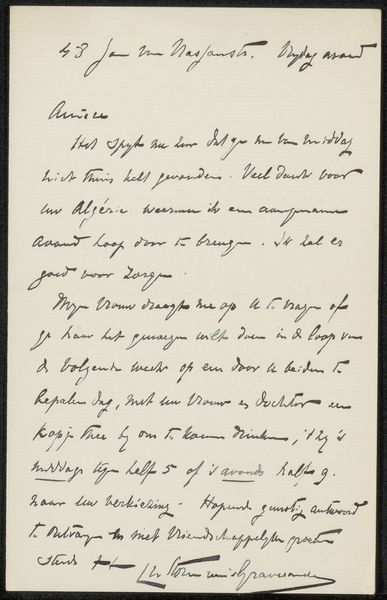 43 Jan van Nassaustr. Vrijdag avond
Amice
Het spijt me zeer dat ge me van middag
niet thuis hebt gevonden. Veel dank voor
uw Algérie waarmee ik een aangename
avond hoop door te brengen. Ik zal er
goed voor zorgen.
Mijn vrouw draagt me op U te vragen of
ge haar het genoegen wilt doen in de loop van
de volgende week op een door U beiden te
bepalen dag, met uw vrouw en dochter een
kopje thee bij ons te komen drinken, 't zij 's
middags tegen half 5 of 's avonds half 9.
naar uw verkiezing - Hopend gunstig antwoord
te ontvangen en met vriendschappelijke groeten
steeds tt
C v Storm van 's Gravesande